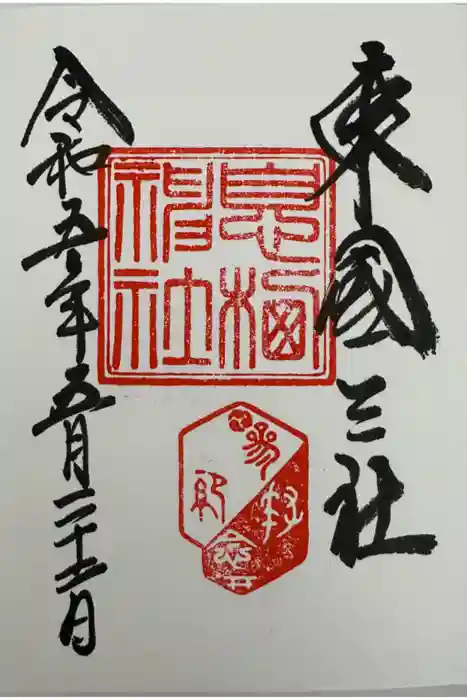 東國三社
息栖
神社
令和五年五月二十五日